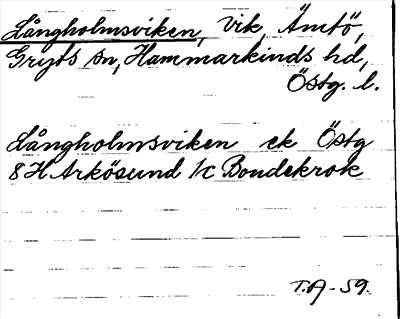 Långholmsviken, vik, Ämtö,
Gryts sn, Hammarkinds hd,
Östg. l.
Långholmsviken ek Östg
8H Arkösund 1/c Bondekrok
T.A-59.